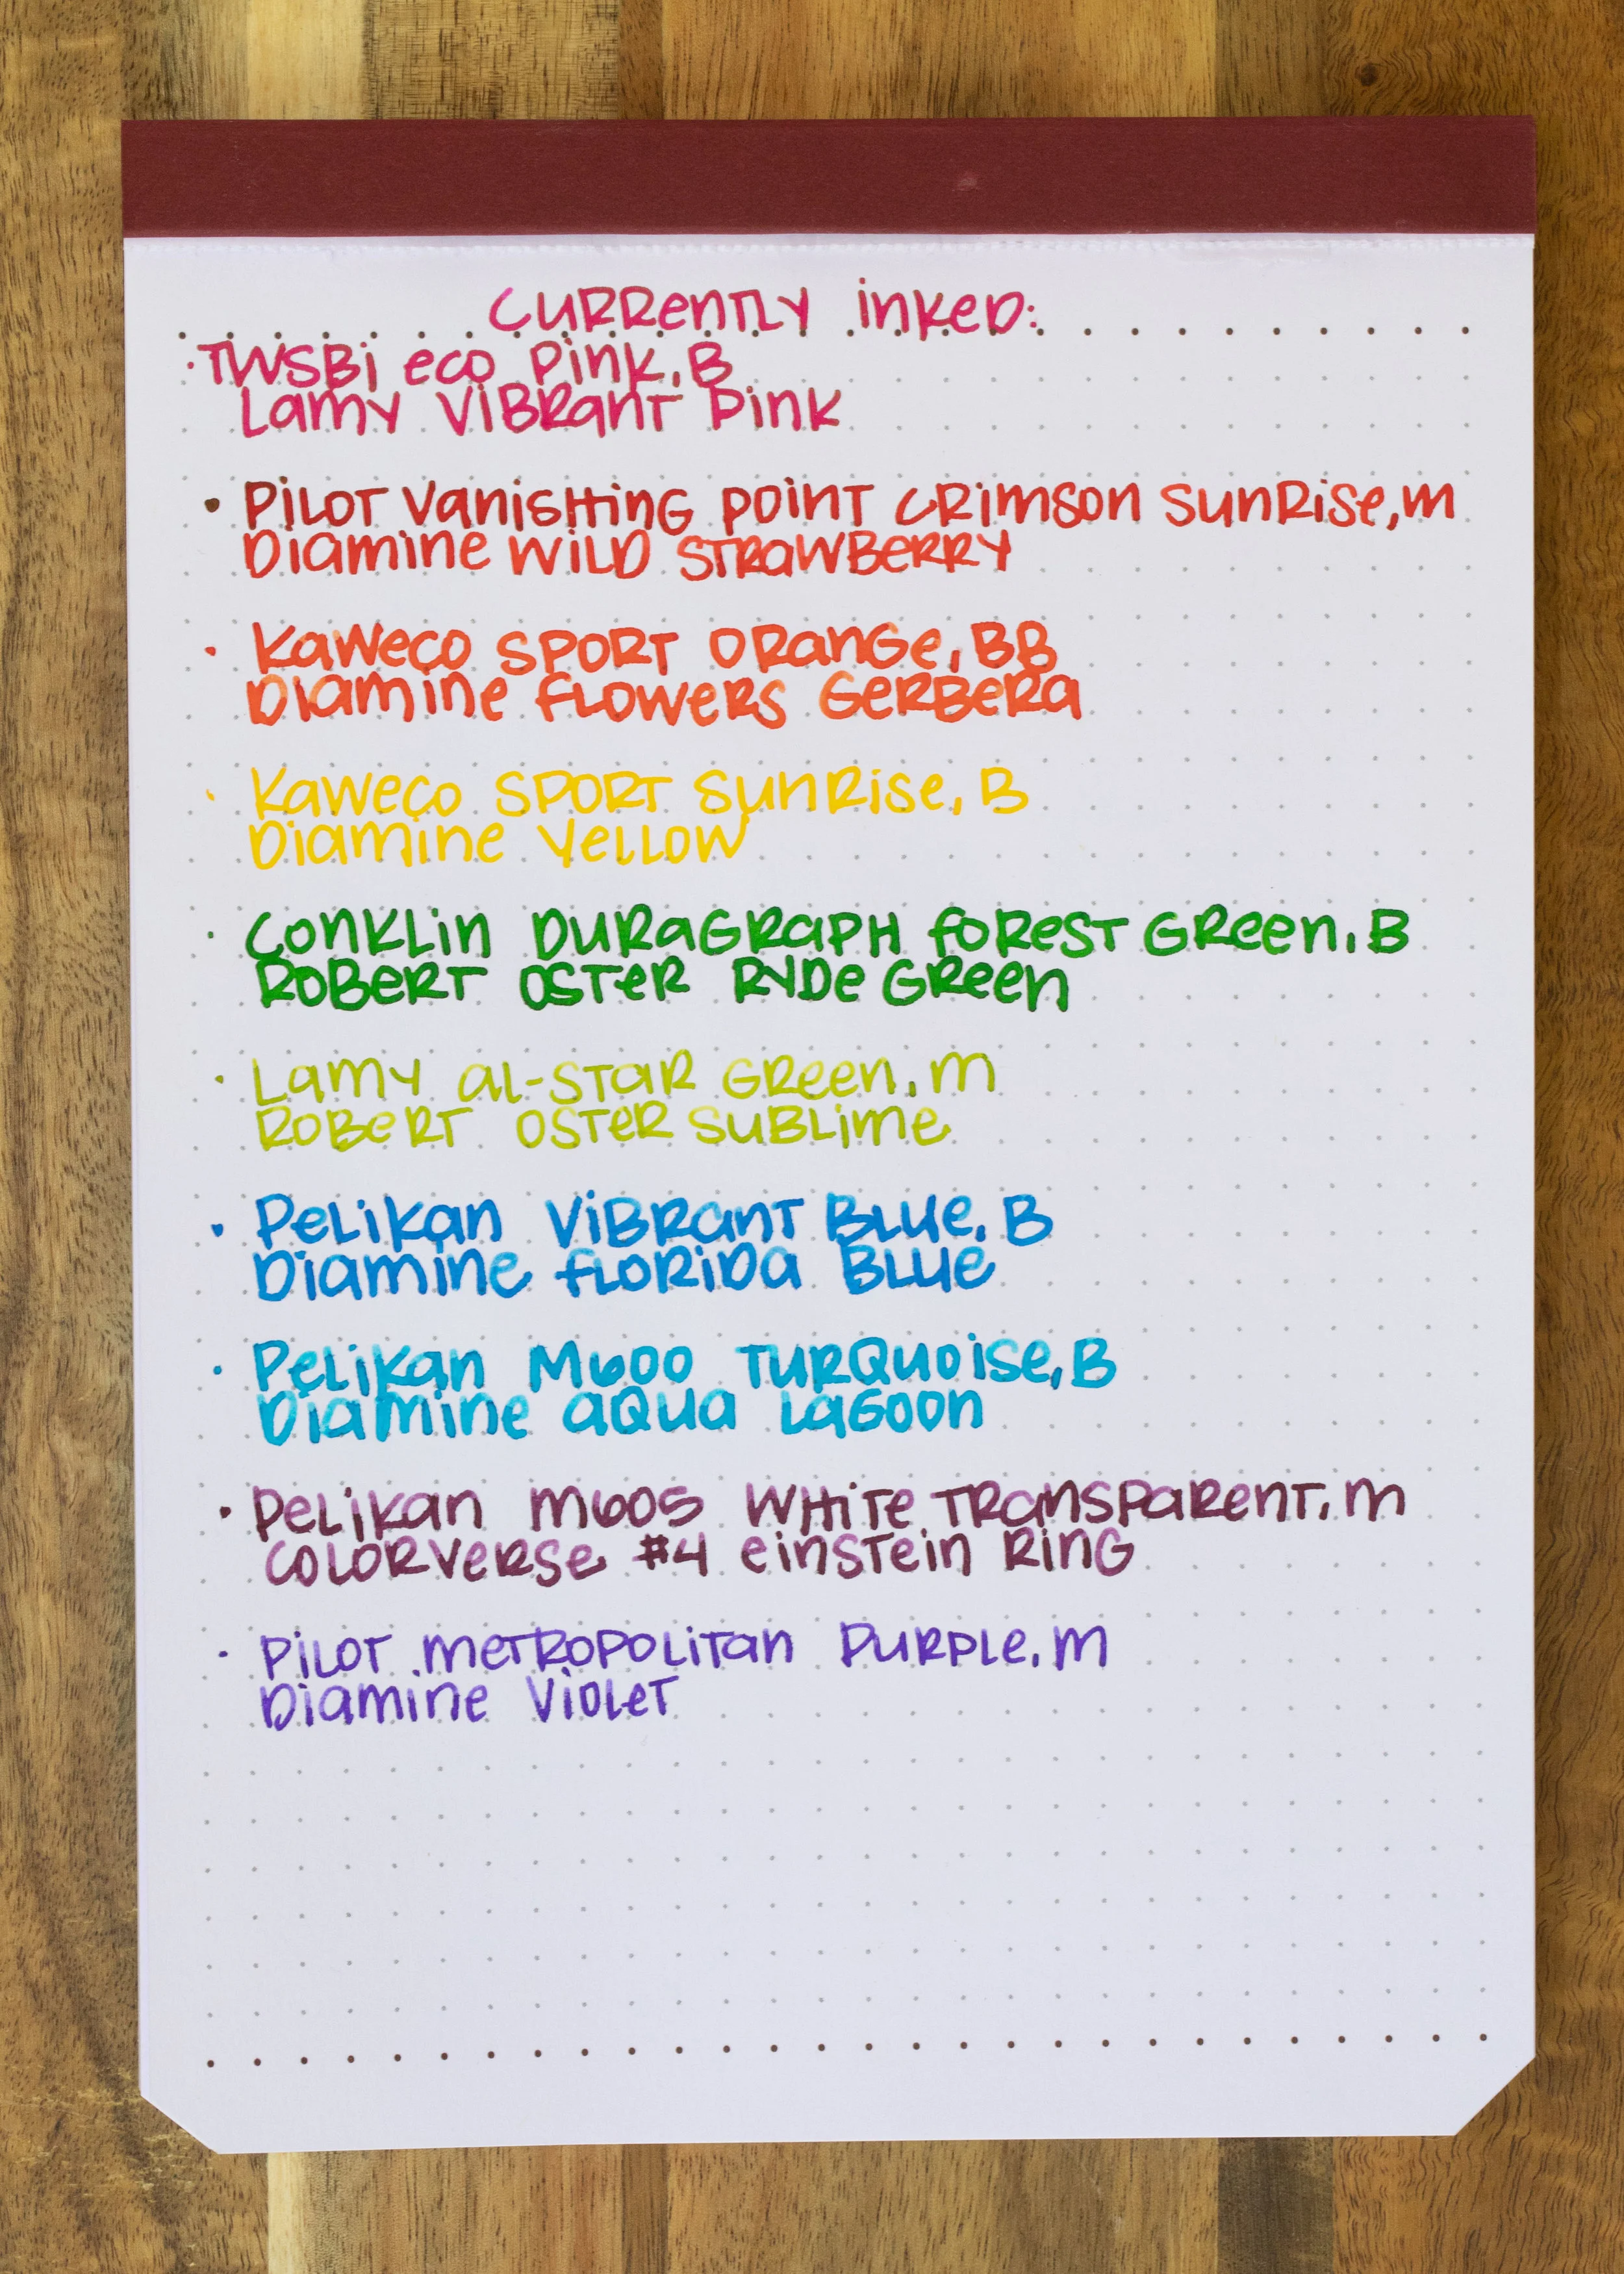 Currently inked:
· TWSBI eco Pink, B
Lamy Vibrant Pink
· Pilot Vanishing Point Crimson Sunrise, M
Diamine Wild Strawberry
· Kaweco Sport Orange, BB
Diamine Flowers Gerbera
· Kaweco Sport Sunrise, B
Diamine Yellow
· Conklin Duragraph Forest Green, B
Robert Oster Ryde Green
· Lamy Al-Star Green, M
Robert Oster Sublime
· Pelikan Vibrant Blue, B
Diamine Florida Blue
· Pelikan M600 Turquoise, B
Diamine Aqua Lagoon
· Pelikan M605 White Transparent, M
Colorverse #4 Einstein Ring
· Pilot Metropolitan Purple, M
Diamine Violet